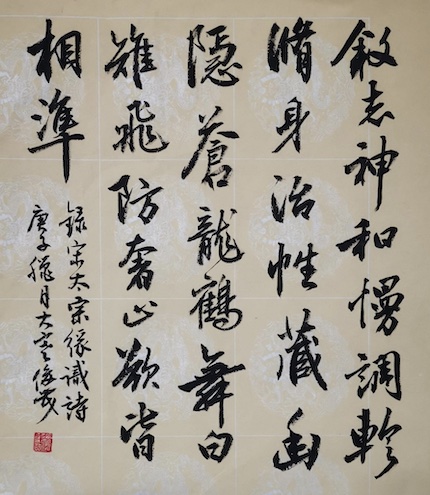 敘志神和慢調軫
脩身治性藏幽
隱蒼龍鶴舞白
雉飛防奢心欲皆
相準
錄宋太宗緣識詩
庚子臘月大寒俊